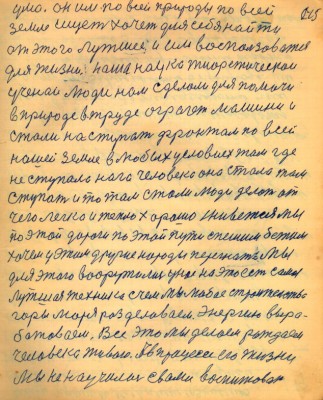 115
ума. он им по всей природы по всей
земле ищет хочет для себя найти
от этого лутшее и им воспользоватся
для жизни. наша наука тиоретическои
ученаи люди нам сделаи для помочи
в природе в труде ограет машини и
стали наступат фронтам по всей
нашей земле в любых условиех там где
не ступала нага человека она стала там
ступат и то там стали люди делат от
чего легко и тепло хорошо живется мы
по этой дороги по этой пути спешим бежим
хочем у этим другие народы перегнат. Мы
для этого вооружилис уже на это ест самая
лутшая техника с чем мы любое строителство
горы моря розделоваем. Энергию выра-
ботоваем. Все это мы делаем рождаем
человека живого. А в процессе его жизни
мы не научилис с вами воспитоват